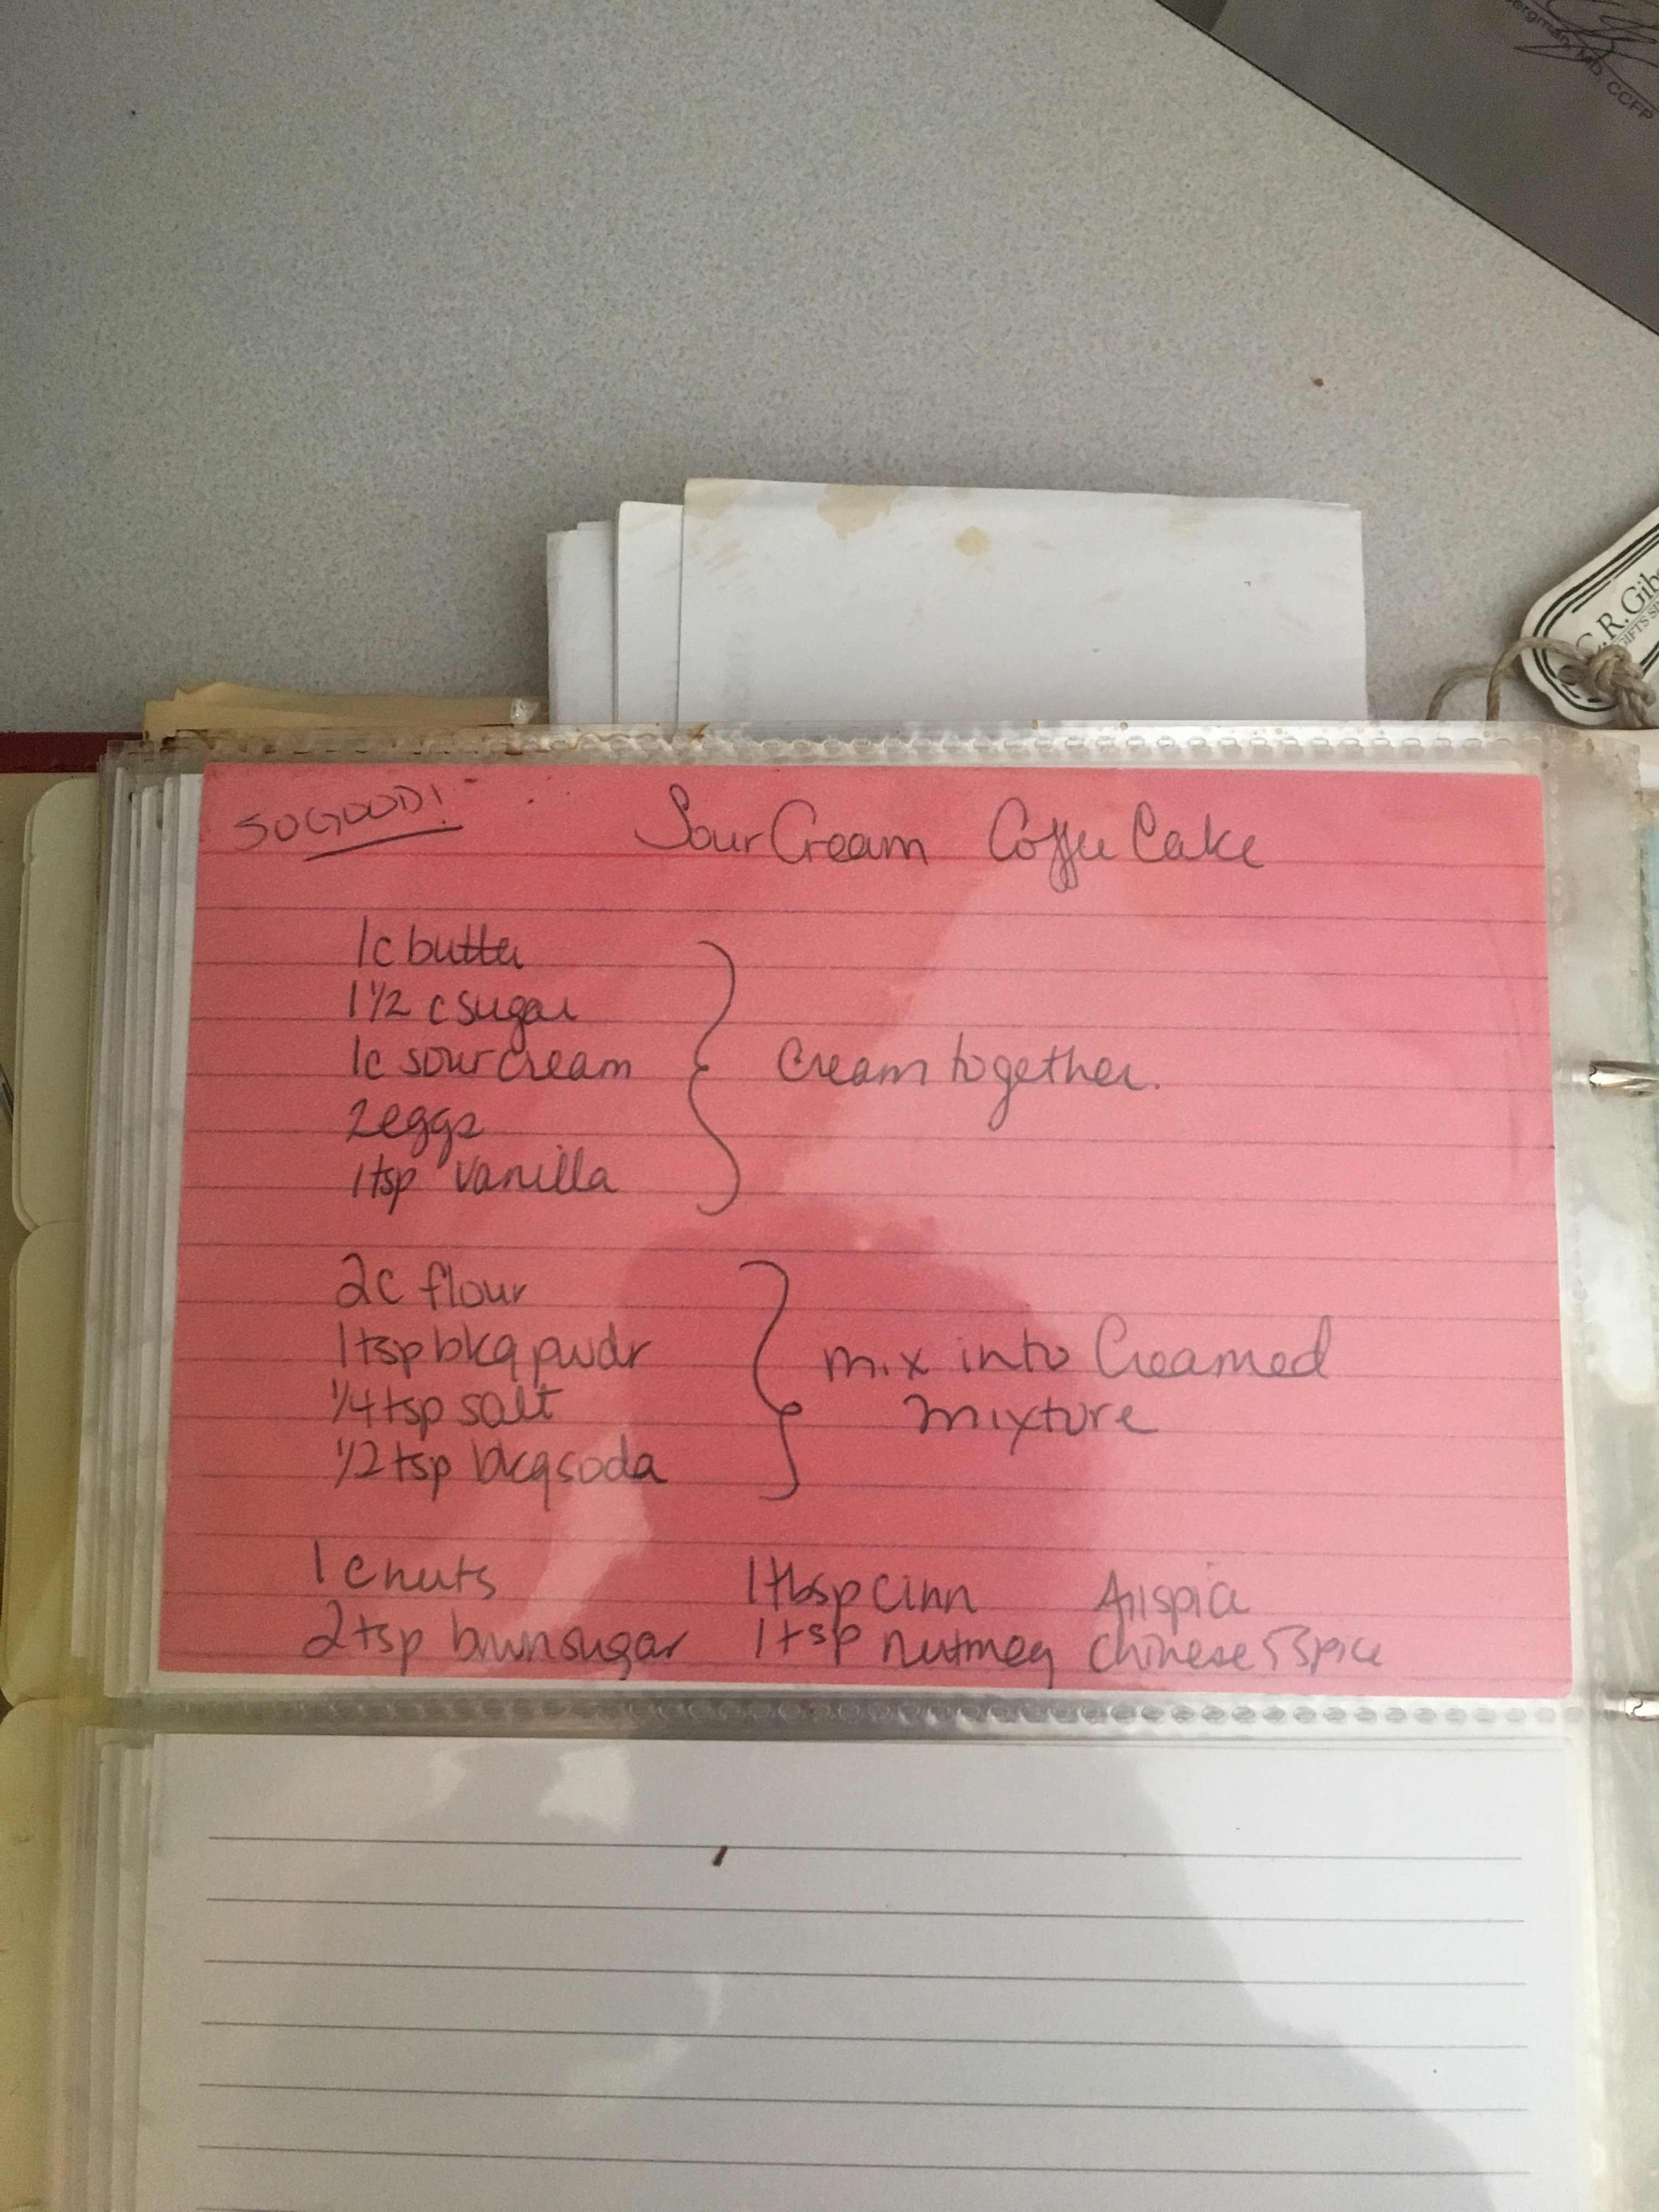 ergman, MD, CCFP
C.R.Gibs
GIFTS SI
SO GOOD!
Sour Cream Coffee Cake
1c butter
1 1/2 c sugar
1c sour cream
2 eggs
1 tsp vanilla
Cream together.
2c flour
1 tsp bkg pwdr
1/4 tsp salt
1/2 tsp bkg soda
mix into Creamed
mixture
1 c nuts 1 tbsp cinn Allspice
2 tsp brwn sugar 1 tsp nutmeg Chinese 5 Spice